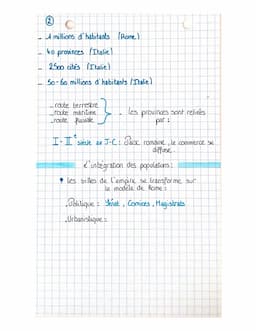 ②
_ 1 millions d'habitants (Rome)
_ 40 provinces (Italie)
_ 2500 cités (Italie)
_ 50-60 millions d'habitants (Italie)
_ route terrestre
_ route maritime } les provinces sont reliés
_ route fluviale par :
I - IIᵉ siècle ap J-C : Paix romaine, le commerce se
diffuse.
L'intégration des populations :
• Les villes de l'empire se transforme sur
le modèle de Rome :
. Politique : Sénat, Comices, Magistrats
. Urbanistique :